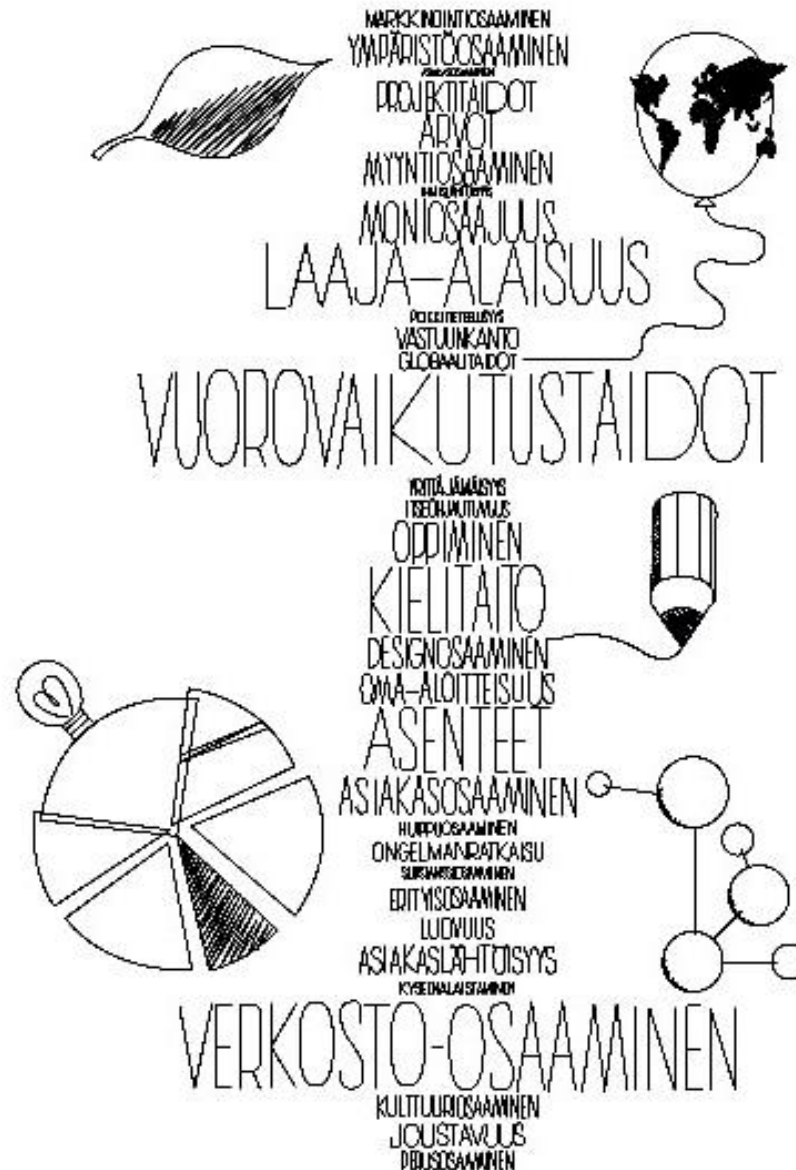 MARKKINOINTIOSAAMINEN
YMPÄRISTÖOSAAMINEN
PROJEKTITAIDOT
ARVOT
MYYNTIOSAAMINEN
MONIOSAAJUUS
LAAJA-ALAISUUS
POIKKITIETEELLISYYS
VASTUUNKANTO
GLOBAALITAIDOT
VUOROVAIKUTUSTAIDOT
YRITTÄJÄMÄISYYS
ITSEOHJAUTUVUUS
OPPIMINEN
KIELITAITO
DESIGNOSAAMINEN
OMA-ALOITTEISUUS
ASENTEET
ASIAKASOSAAMINEN
HUIPPUOSAAMINEN
ONGELMANRATKAISU
ERITYISOSAAMINEN
LUOVUUS
ASIAKASLÄHTÖISYYS
KYSEENALAISTAMINEN
VERKOSTO-OSAAMINEN
KULTTUURIOSAAMINEN
JOUSTAVUUS
PERUSOSAAMINEN